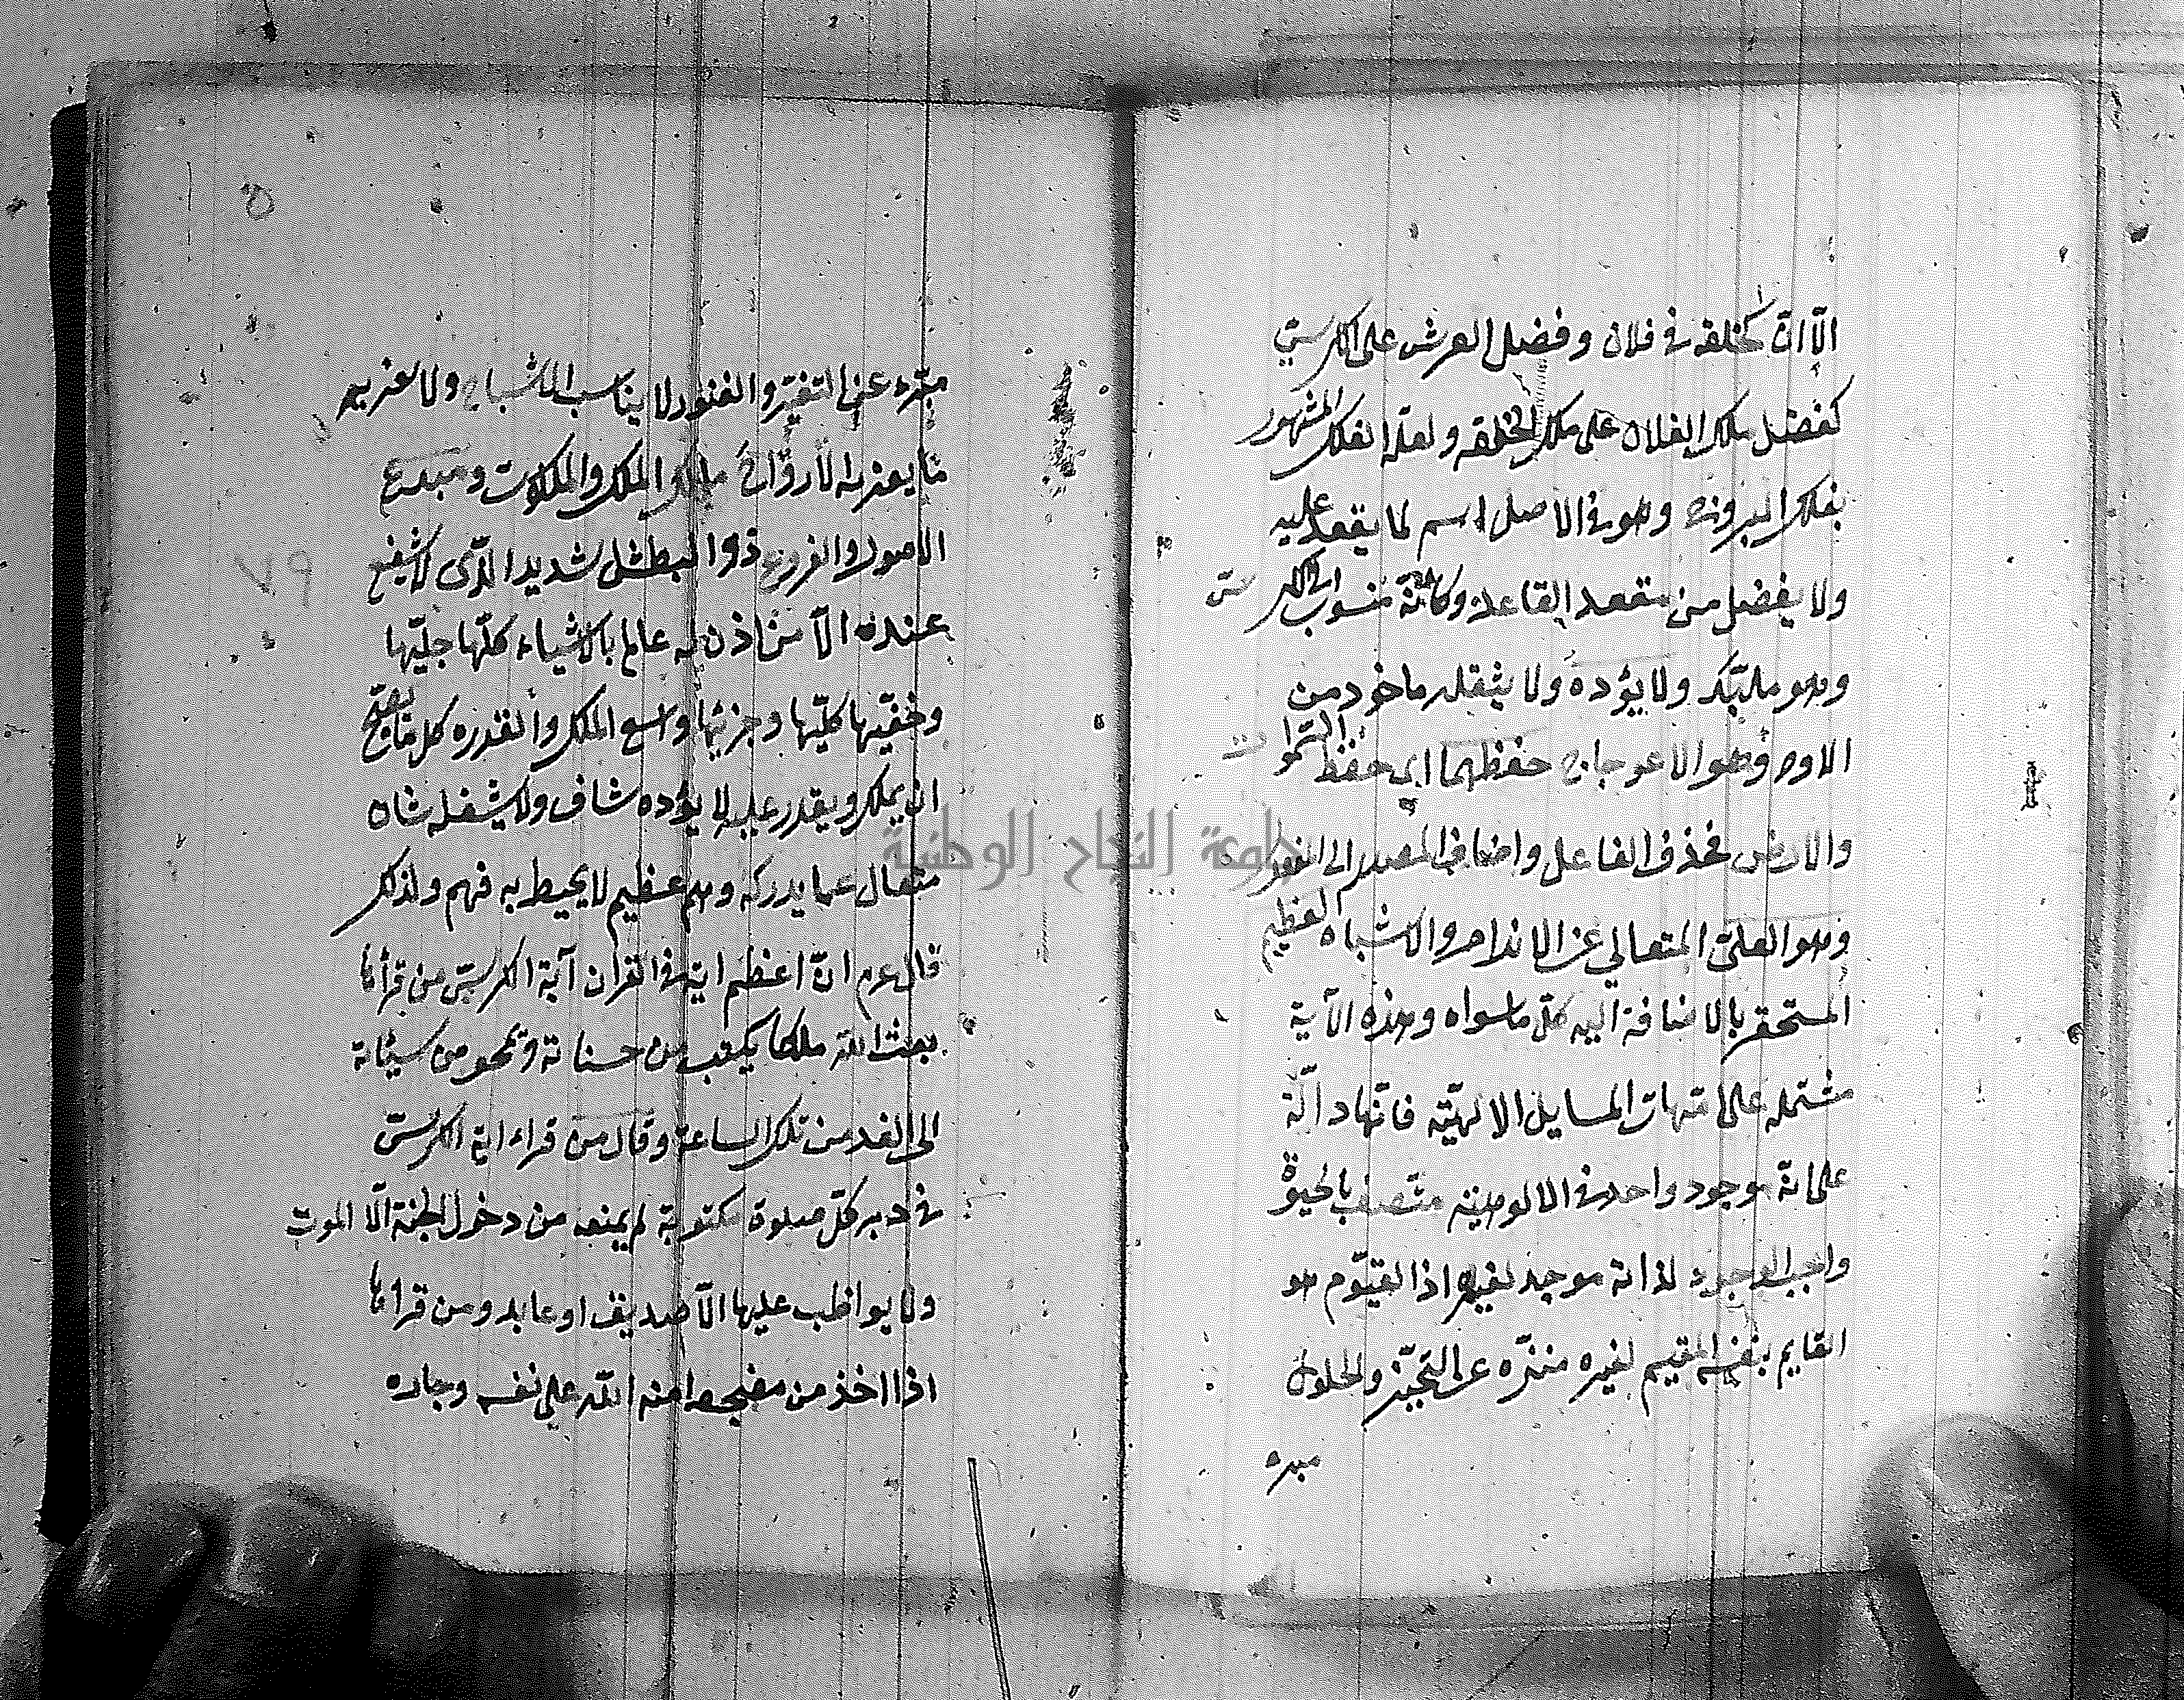 الّا ان كحلقه فى فلاة وفضل العرش على الكرسي
كفضل تلك الفلاة على تلك الحلقه ولعلّه الفلك المشهور
بفلك البروج وهو فى الاصل اسم لما يقعد عليه
ولا يفضل من مقعد القاعد وكانّه منسوب الى الكرسى
وهو ملبّد ولا يؤده ولا يثقله ماخوذ من
الاود وهو الاعوجاج حفظهما اى حفظ السموات
والارض فحذف الفاعل واضاف المصدر الى المفعول
وهو العلىّ المتعالي عن الانداد والاشباه العظيم
المستحقر بالاضافة اليه كلّ ما سواه وهذه الآية
مشتمله على امّهات المسايل الالهيّه فانّها دالّة
على انّه موجود واحد فى الالوهيّه متّصف بالحيوة
واجب الوجود لذاته موجد لغيره اذ القيّوم هو
القايم بنفسه المقيم لغيره منزّه عن التحيّز والحلول
مبرء
٥
مبرّء عن التغيّر والفتور لا يناسب الاشباح ولا يعتريه
ما يعتري الارواح مالك الملك والملكوت ومبدع
الاصول والفروع ذو البطش الشديد الذى لا يشفع
عنده الّا من اذن له عالم بالاشياء كلّها جليّها
وخفيّها كليّها وجزئيّها واسع الملك والقدره كل ما يصحّ
ان يملك ويقدر عليه لا يؤده شاق ولا يشغله شان
متعال عما يدركه وهم عظيم لا يحيط به فهم ولذلك
قال عم انّ اعظم اية فى القران آية الكرسىّ من قرأها
بعث الله ملكا يكتب من حسناته ويمحو من سيئاته
الى الغد من تلك الساعة وقال من قراء اية الكرسىّ
فى دبر كلّ صلوة مكتوبة لم يمنعه من دخول الجنة الّا الموت
ولا يواظب عليها الّا صديق او عابد ومن قرأها
اذا اخذ من مضجعه امنه الله على نفسه وجاره
٩٧
جامعة النجاح الوطنية